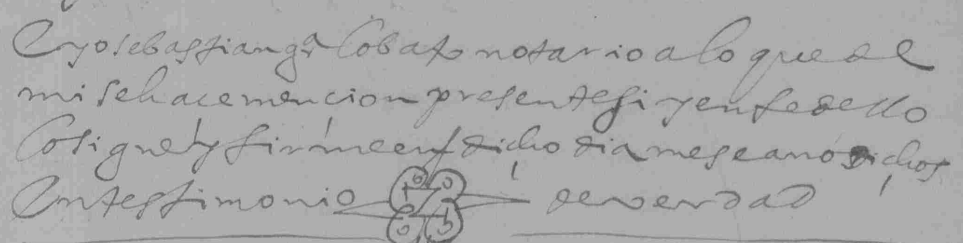 E yo sebastian gra Cobato notario a lo que de
mi se hace mencion presente fui y en fe dello
lo signe y firme en dicho dia mes e ano dichos
En testimonio de verdad